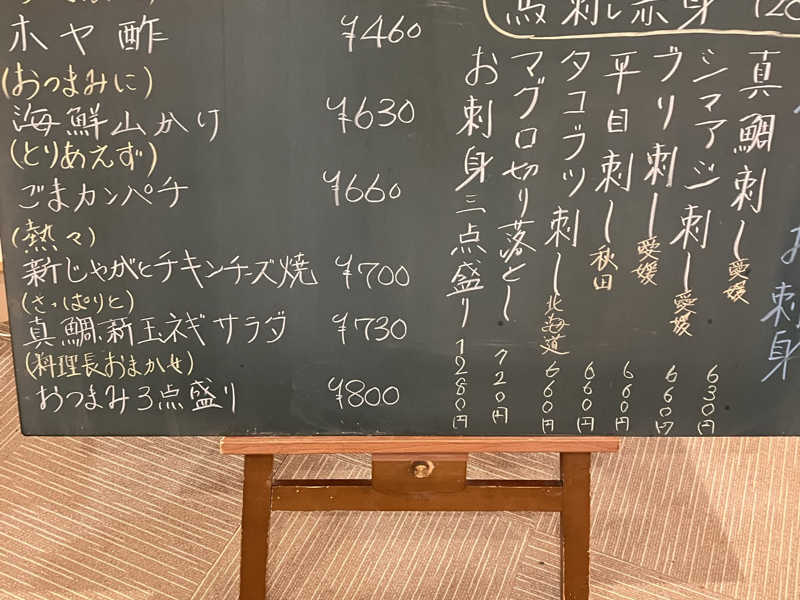 ホヤ酢 ¥460
(おつまみに)
海鮮山かけ ¥630
(とりあえず)
ごまカンパチ ¥660
(熱々)
新じゃがとチキンチーズ焼 ¥700
(さっぱりと)
真鯛新玉ネギサラダ ¥730
(料理長おまかせ)
おつまみ3点盛り ¥800
馬刺し赤身
お刺身
真鯛刺し 愛媛 630円
シマアジ刺し 愛媛 660円
ブリ刺し 愛媛 660円
平目刺し 秋田 660円
タコブツ刺し 北海道 660円
マグロ切り落とし 720円
お刺身三点盛り 1280円